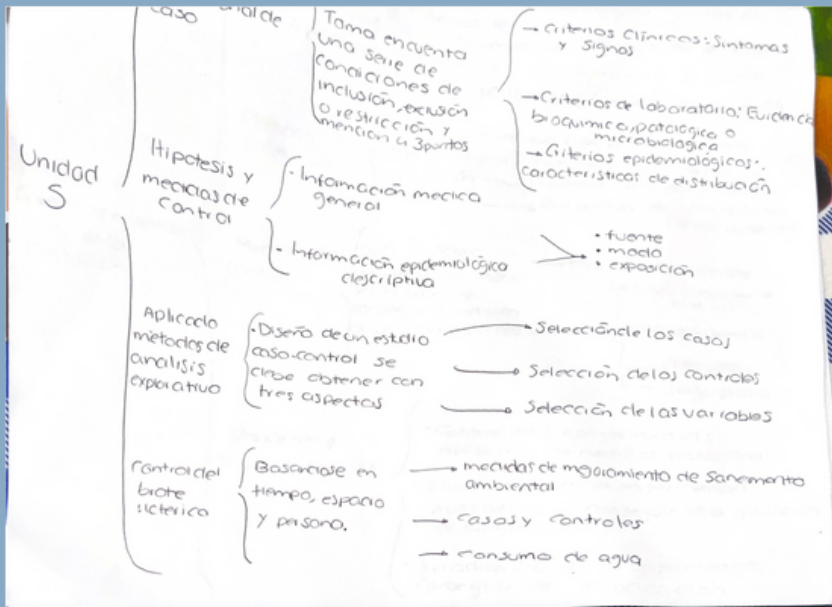 caso
Toma encuenta
una serie de
condiciones de
inclusión, exclusión
o restricción y
menciona 3 puntos
→ Criterios Clínicos: Sintomas
y Signos
→ Criterios de laboratorio: Evidencia
bioquimica, patologica o
microbiologica
→ Criterios epidemiológicos:
caracteristicas de distribución
Unidad
5
Hipotesis y
medidas de
control
· Información medica
general
· Información epidemiológica
descriptiva
• fuente
• modo
• exposición
Aplicado
metodos de
analisis
explorativo
· Diseño de un estudio
caso-control se
debe obtener con
tres aspectos
→ Selección de los casos
→ Selección de los controles
→ Selección de las variables
Control del
brote
icterico
Basandose en
tiempo, espacio
y persona.
→ medidas de mejoramiento de Sanemento
ambiental
→ casos y controles
→ consumo de agua